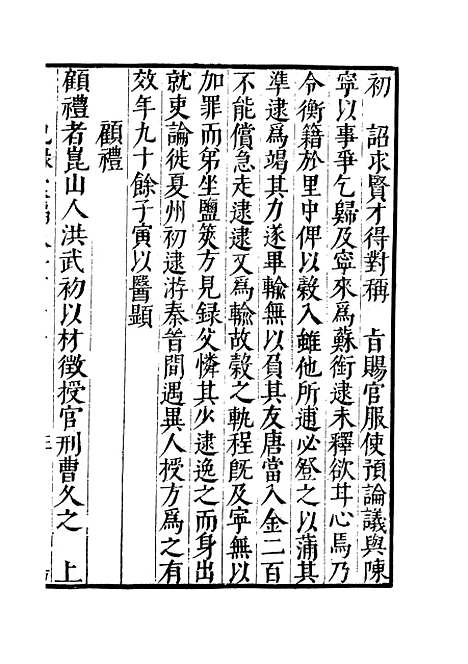 初　詔求賢才得對稱　旨賜官服使預論議與陳
寧以事爭乞歸及寧來為蘇銜逮未釋欲甘心焉乃
令衡籍於里中俾以穀入雖他所逋必登之以蒲其
準逮為竭其力遂畢輸無以負其友唐當入金二百
不能償急走逮逮又為輸故穀之䡄程旣及寧無以
加罪而第坐鹽筴方見録父憐其少逮逸之而身出
就吏論徙夏州初逮游秦晉間遇異人授方為之有
效年九十餘子寅以醫顯
顧禮
顧禮者崑山人洪武初以材徵授官刑曹久之　上